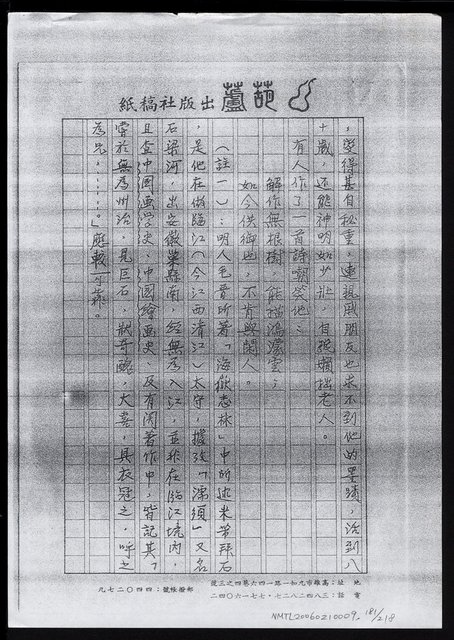 葫蘆出版社稿紙
，變得甚自秘重，連親戚朋友也求不到他的墨蹟，活到八
十歲，还能神明如少壯，自號嬾拙老人。
有人作了一首詩嘲笑他：
解作無根樹，能描濛鴻雲；
如今供御也，不肯與閒人。
（註一）：明人毛晉所著「海嶽志林」中所述米芾拜石
，是他在做臨江（今江西清江）太守，據攷「濡須」又名
石梁河，出安徽巢縣南，經無為入江，並非在臨江境內，
且查中國画学史、中國繪画史、及有関著作中，皆記其「
嘗於無為州治，見巨石，狀奇醜，大喜，具衣冠之，呼之
為兄，……。」應較可靠。
地址：高雄市九如一路一四六巷四之三號
電話：三八四二八二七．七七一六〇四二
郵撥帳號：四四〇二七九
NMTL20060210009. 181/218